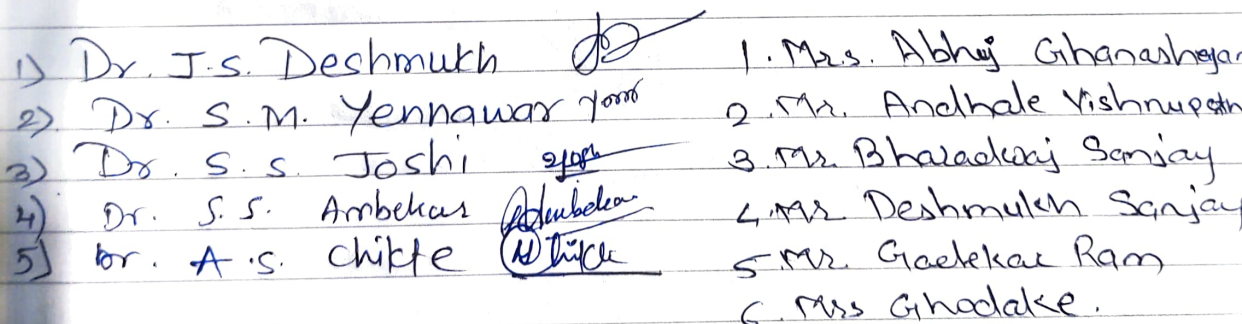 1) Dr. J.S. Deshmukh
2) Dr. S.M. Yennawar
3) Dr. S.S. Joshi
4) Dr. S.S. Ambekar
5) Dr. A.S. Chikte
1. Mrs. Abhuj
2. Mr. Andhale
3. Mr. Bharadwaj Sanjay
4. Mr Deshmukh Sanjay
5. Mr. Gaelekar Ram
6. Mrs Ghodake.